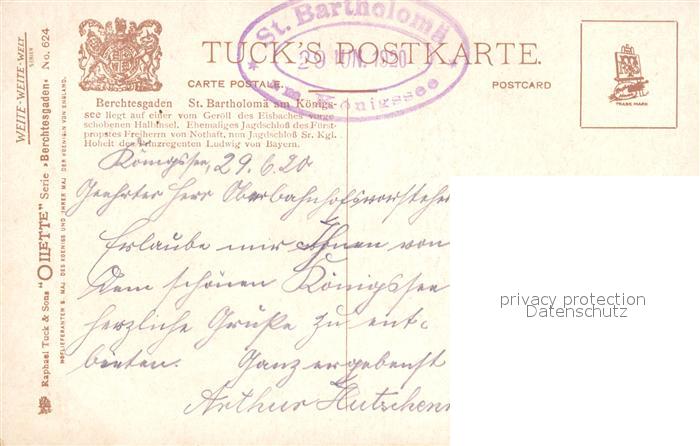 St. Bartholomä
29 JUN. 1920
am Königssee
TUCK'S POSTKARTE.
CARTE POSTALE
POSTCARD
TRADE MARK
Berchtesgaden St. Bartholomä am Königs-
see liegt auf einer vom Geröll des Eisbaches vorge
schobenen Halbinsel. Ehemaliges Jagdschloß des Fürst-
propstes Freiherrn von Nothaft, nun Jagdschloß Sr. Kgl.
Hoheit des Prinzregenten Ludwig von Bayern.
WEITE-WEITE-WELT
SERIEN
Raphael Tuck & Sons "OILETTE" Serie »Berchtesgaden« No. 624
HOFLIEFERANTEN S. MAJ. DES KOENIGS UND IHRER MAJ. DER KOENIGIN VON ENGLAND.
Königssee, 29.6.20
Geehrter Herr Oberbahnhofsvorsteher
Erlaube mir Ihnen von
dem schönen Königssee
herzliche Grüße zu ent-
bieten. Ganz ergebenst
Arthur
privacy protection
Datenschutz